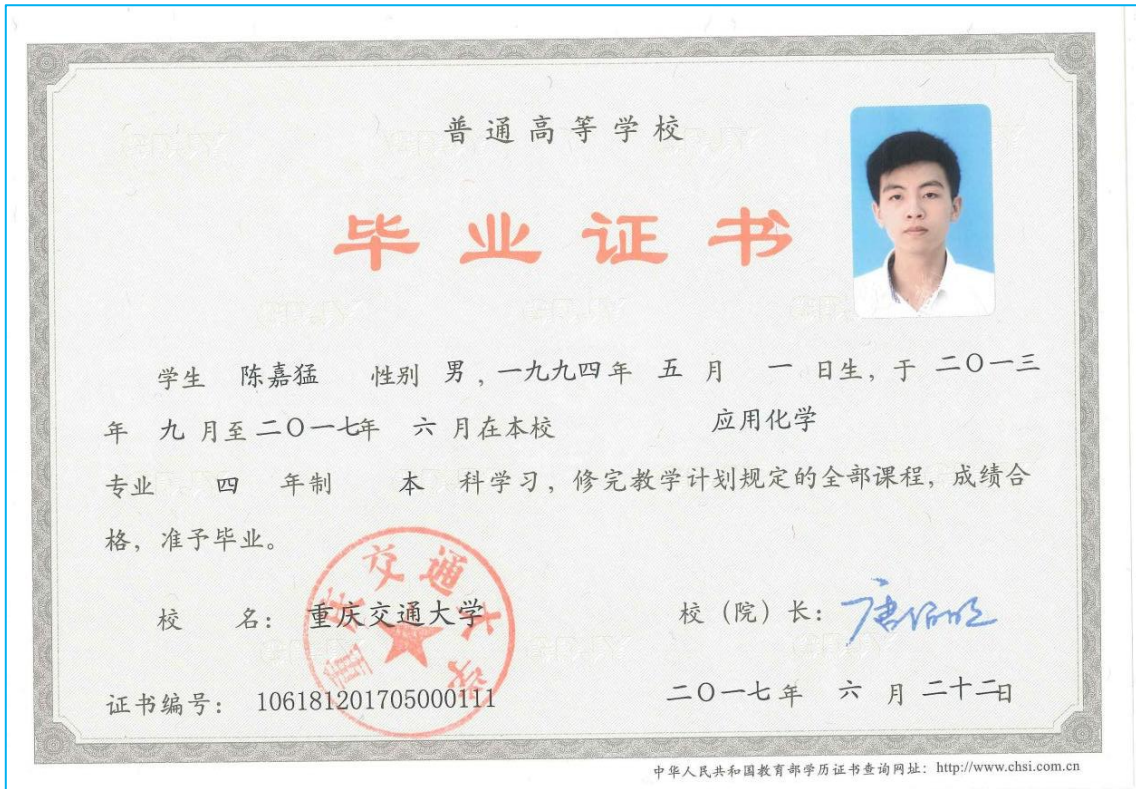 普通高等学校
毕业证书
学生 陈嘉猛 性别 男，一九九四年 五 月 一 日生，于 二〇一三
年 九 月至二〇一七年 六 月在本校 应用化学
专业 四 年制 本 科学习，修完教学计划规定的全部课程，成绩合
格，准予毕业。
重庆交通大学
校 名：重庆交通大学 校（院）长：唐伯明
证书编号：106181201705000111 二〇一七年 六 月 二十二日
中华人民共和国教育部学历证书查询网址：http://www.chsi.com.cn